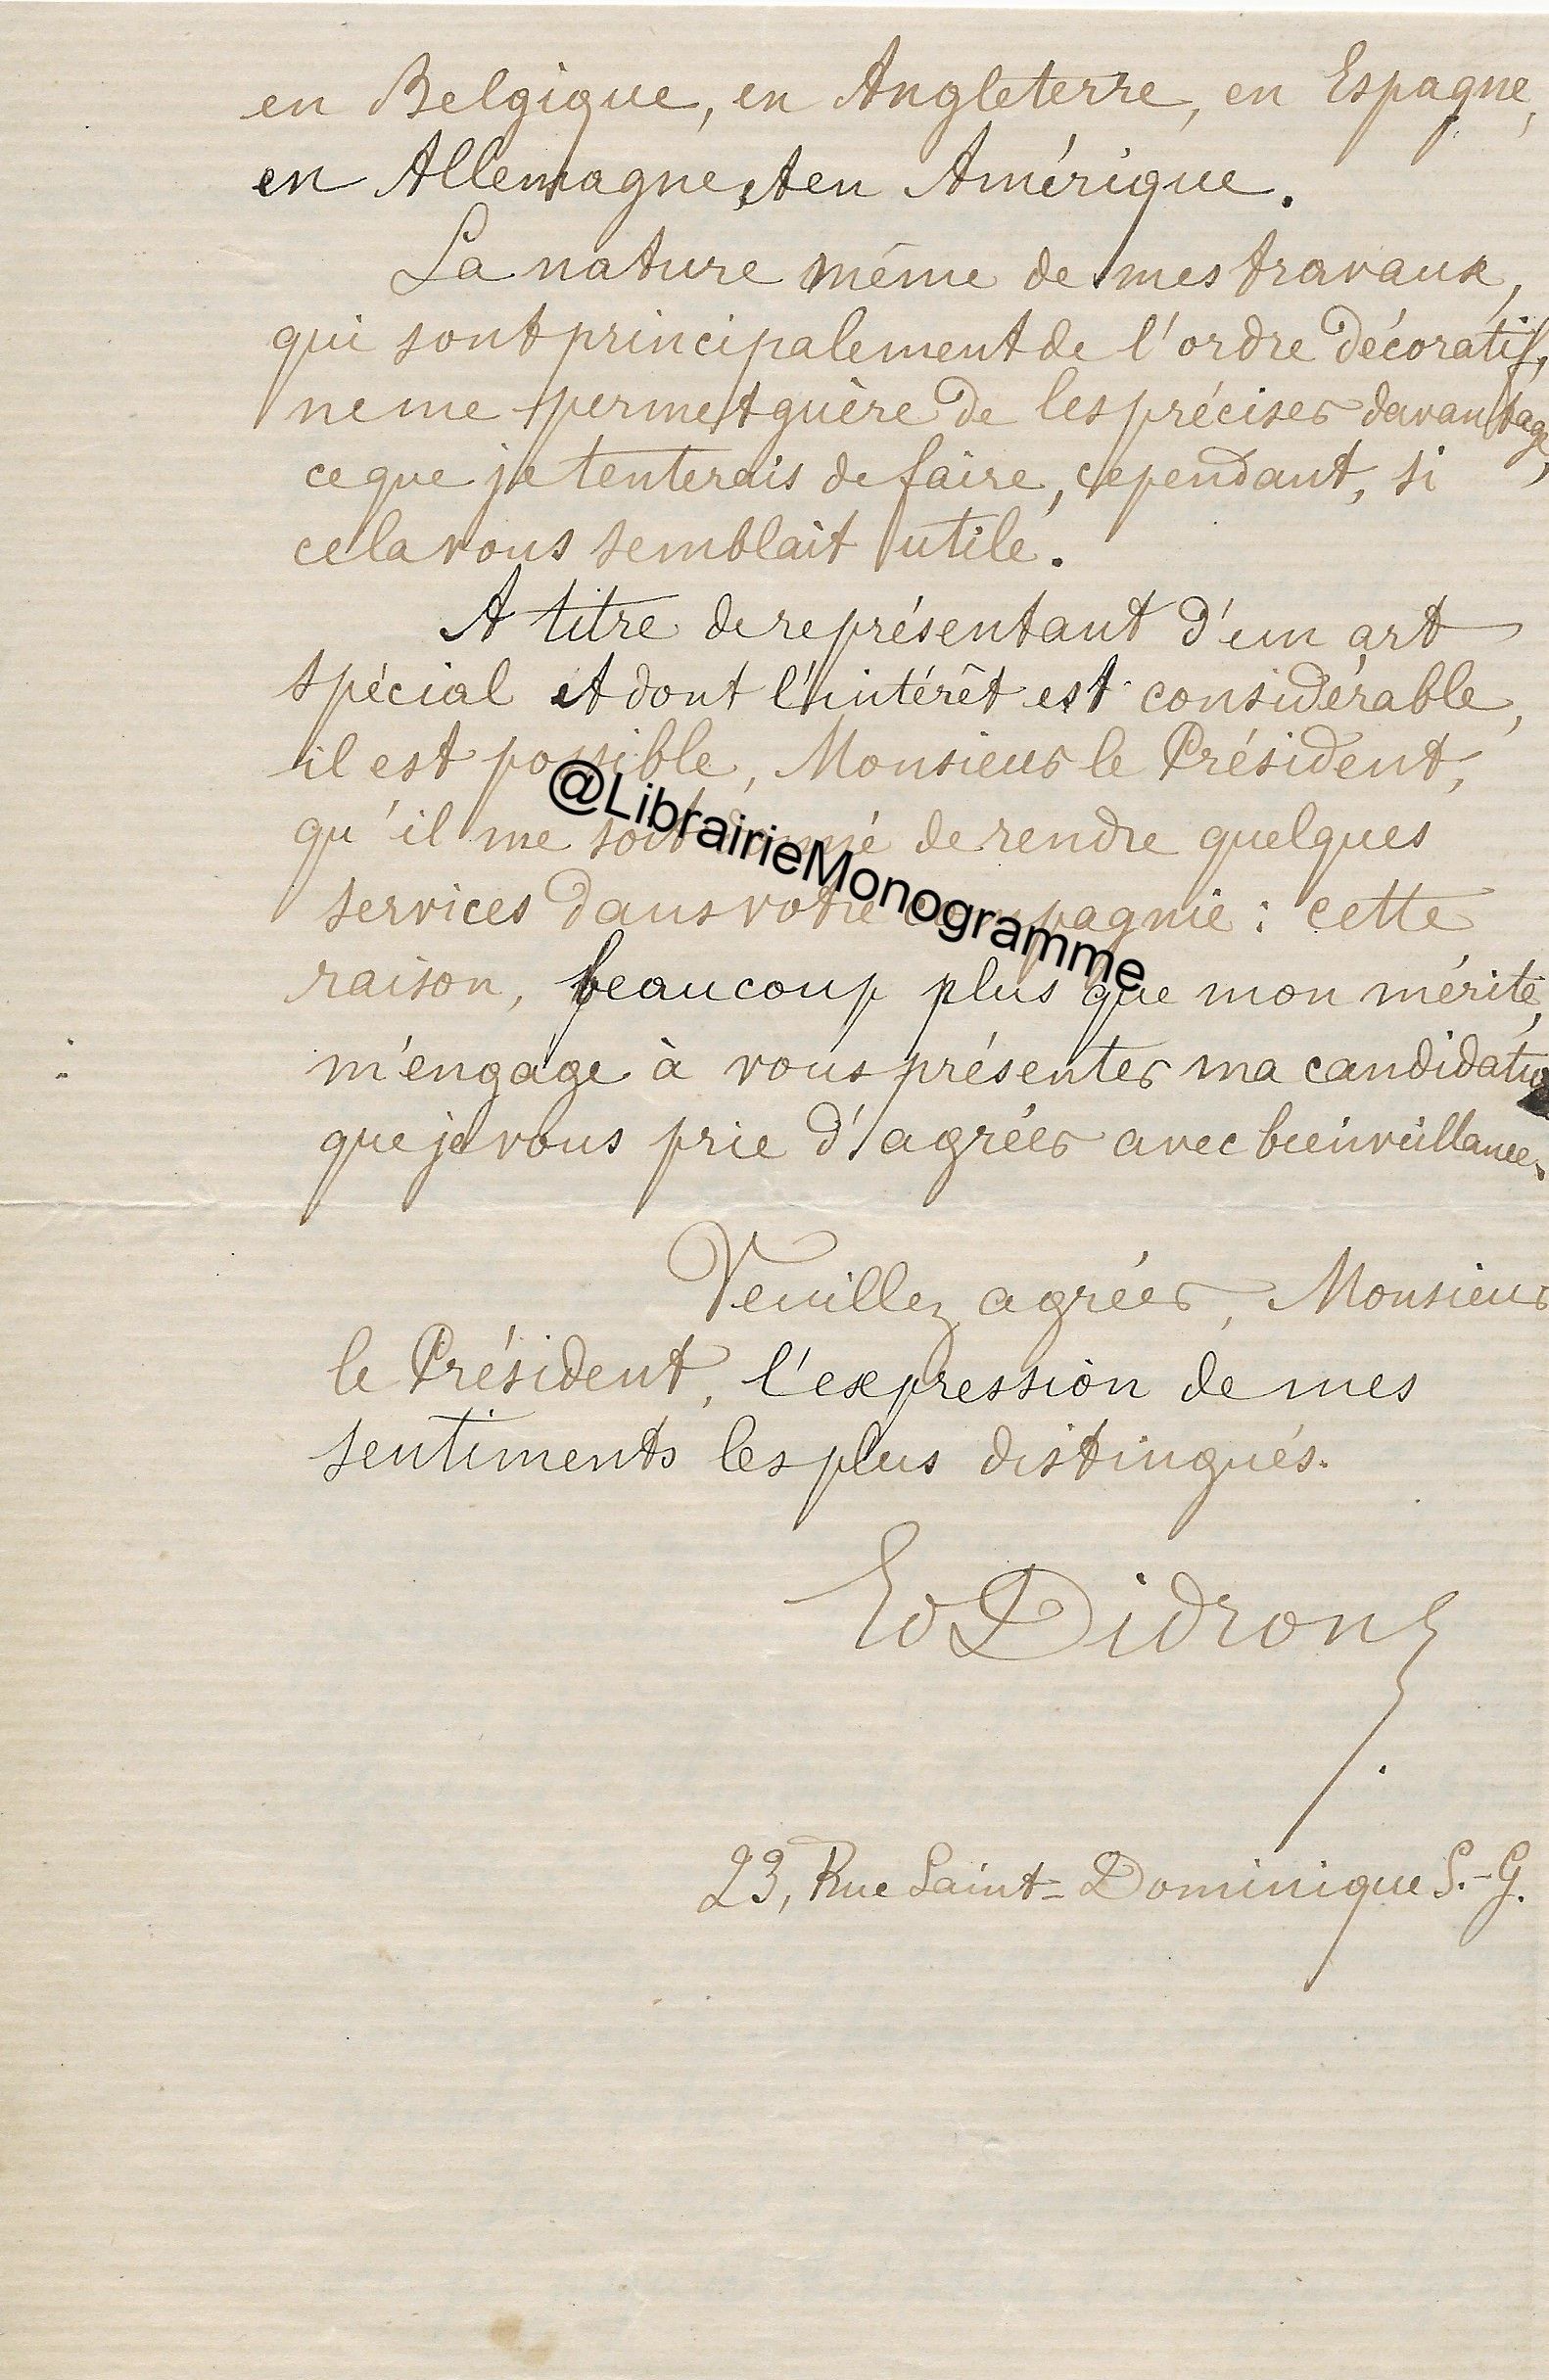 en Belgique, en Angleterre, en Espagne,
en Allemagne et en Amérique.
La nature même de mes travaux,
qui sont principalement de l'ordre décoratif,
ne me permet guère de les préciser davantage,
ce que je tenterais de faire, cependant, si
cela vous semblait utile.
A titre de représentant d'un art
spécial et dont l'intérêt est considérable,
il est possible, Monsieur le Président,
qu'il me soit donné de rendre quelques
services dans votre compagnie : cette
raison, beaucoup plus que mon mérite,
m'engage à vous présenter ma candidatu
que je vous prie d'agréer avec bienveillance.
@LibrairieMonogramme
Veuillez agréer, Monsieur
le Président, l'expression de mes
sentiments les plus distingués.
Ed Didron
23, Rue Saint-Dominique S.-G.